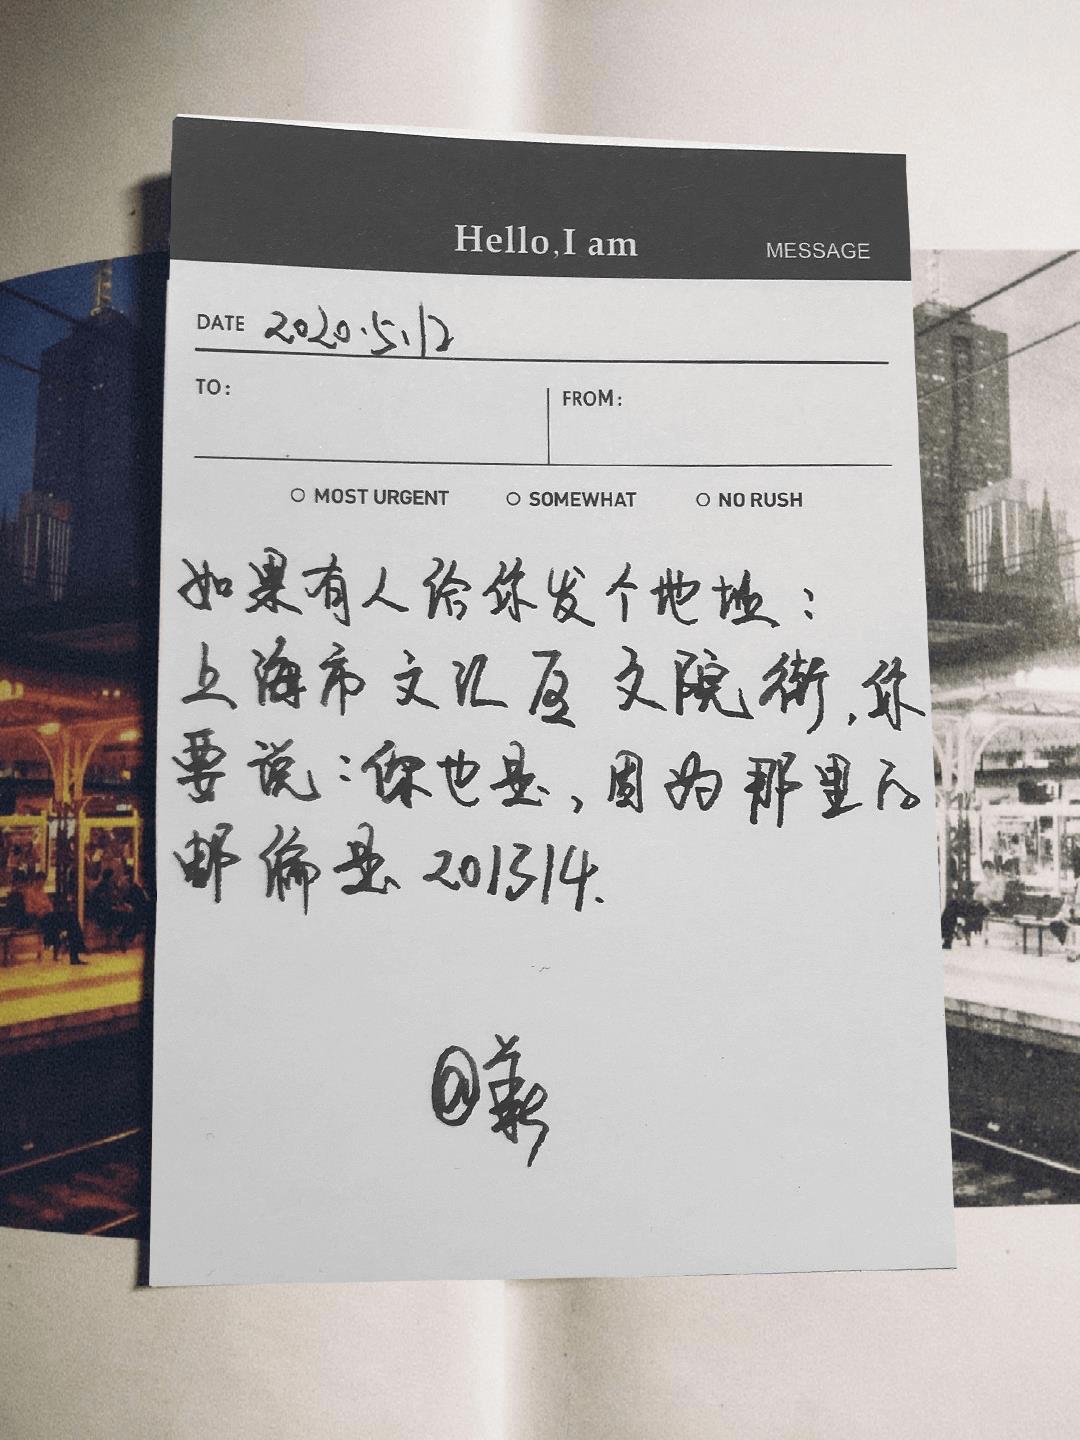 Hello,I am
MESSAGE
DATE 2020.5.12
TO:
FROM:
MOST URGENT
SOMEWHAT
NO RUSH
如果有人给你发个地址：
上海市文汇区文院街，你
要说：你也是，因为那里的
邮编是201314.
@